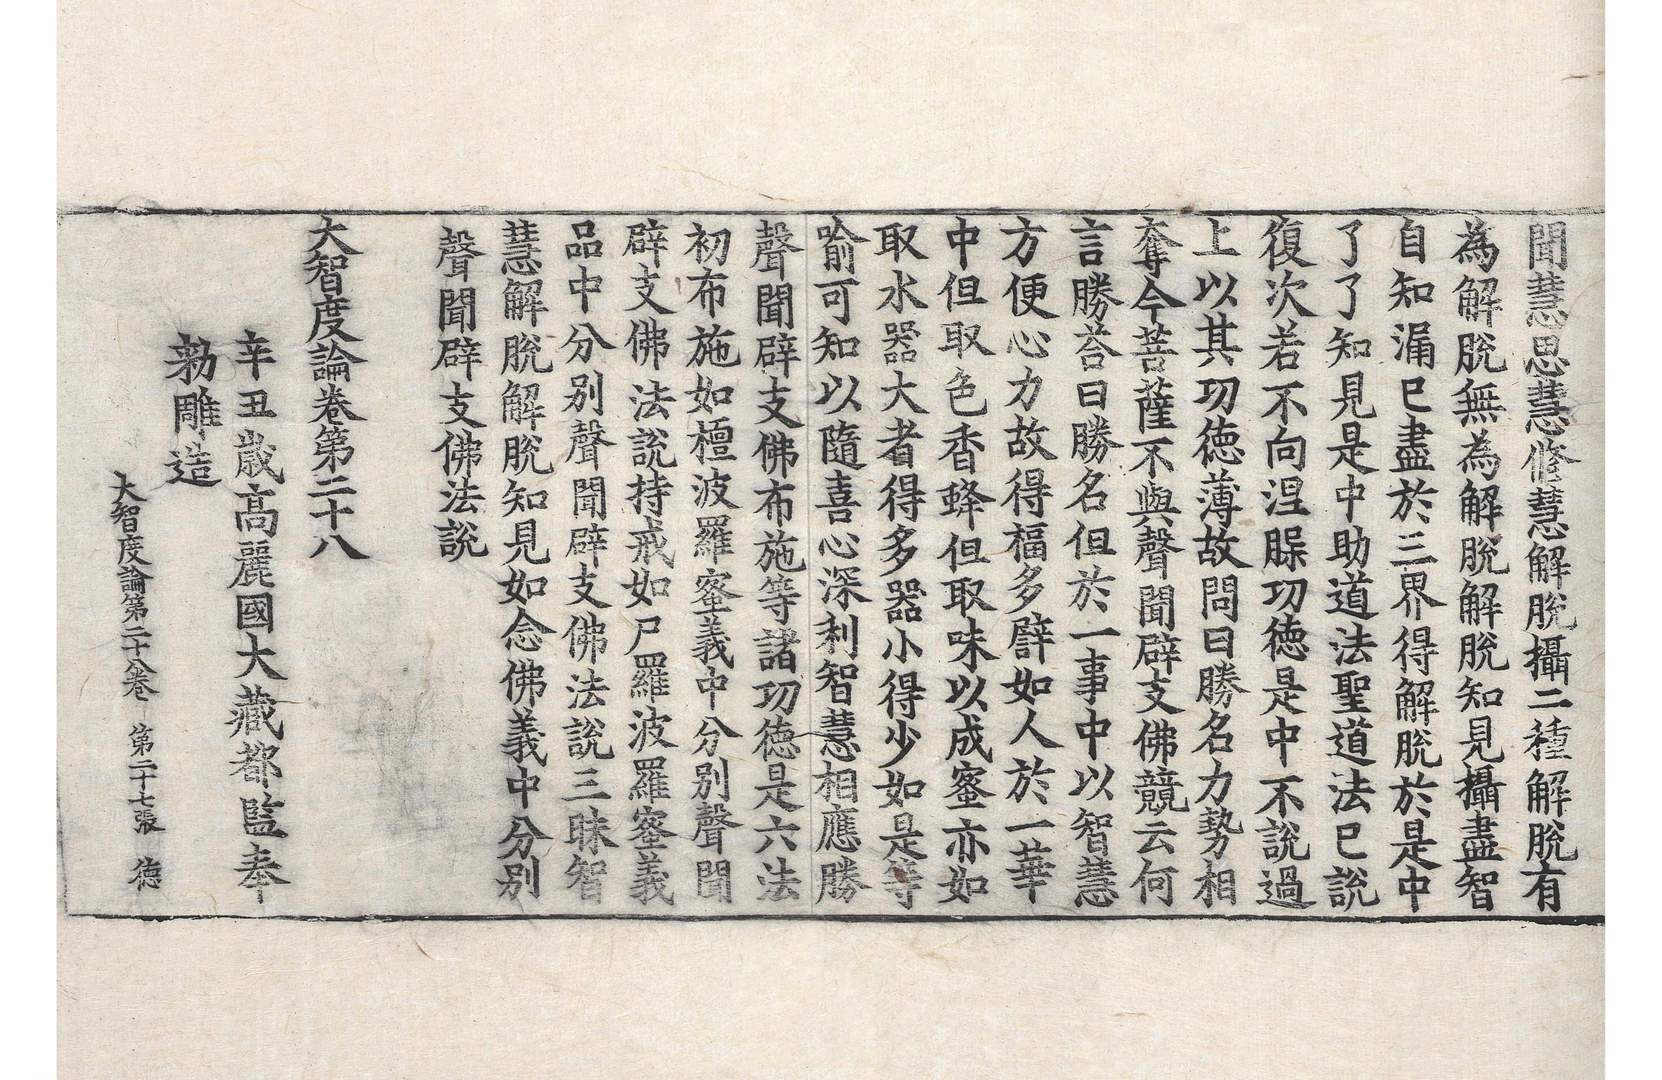 聞慧思慧修慧解脫攝二種解脫有
為解脫無為解脫解脫知見攝盡智
自知漏已盡於三界得解脫於是中
了了知見是中助道法聖道法已說
復次若不向涅槃功德是中不說過
上以其功德薄故問曰勝名力勢相
奪今菩薩不與聲聞辟支佛競云何
言勝荅曰勝名但於一事中以智慧
方便心力故得福多譬如人於一華
中但取色香蜂但取味以成蜜亦如
取水器大者得多器小得少如是等
喻可知以隨喜心深利智慧相應勝
聲聞辟支佛布施等諸功德是六法
初布施如檀波羅蜜義中分別聲聞
辟支佛法說持戒如尸羅波羅蜜義
品中分別聲聞辟支佛法說三昧智
慧解脫解脫知見如念佛義中分別
聲聞辟支佛法說
大智度論卷第二十八
辛丑歲高麗國大藏都監奉
勑雕造
大智度論第二十八卷 第二十七張 德